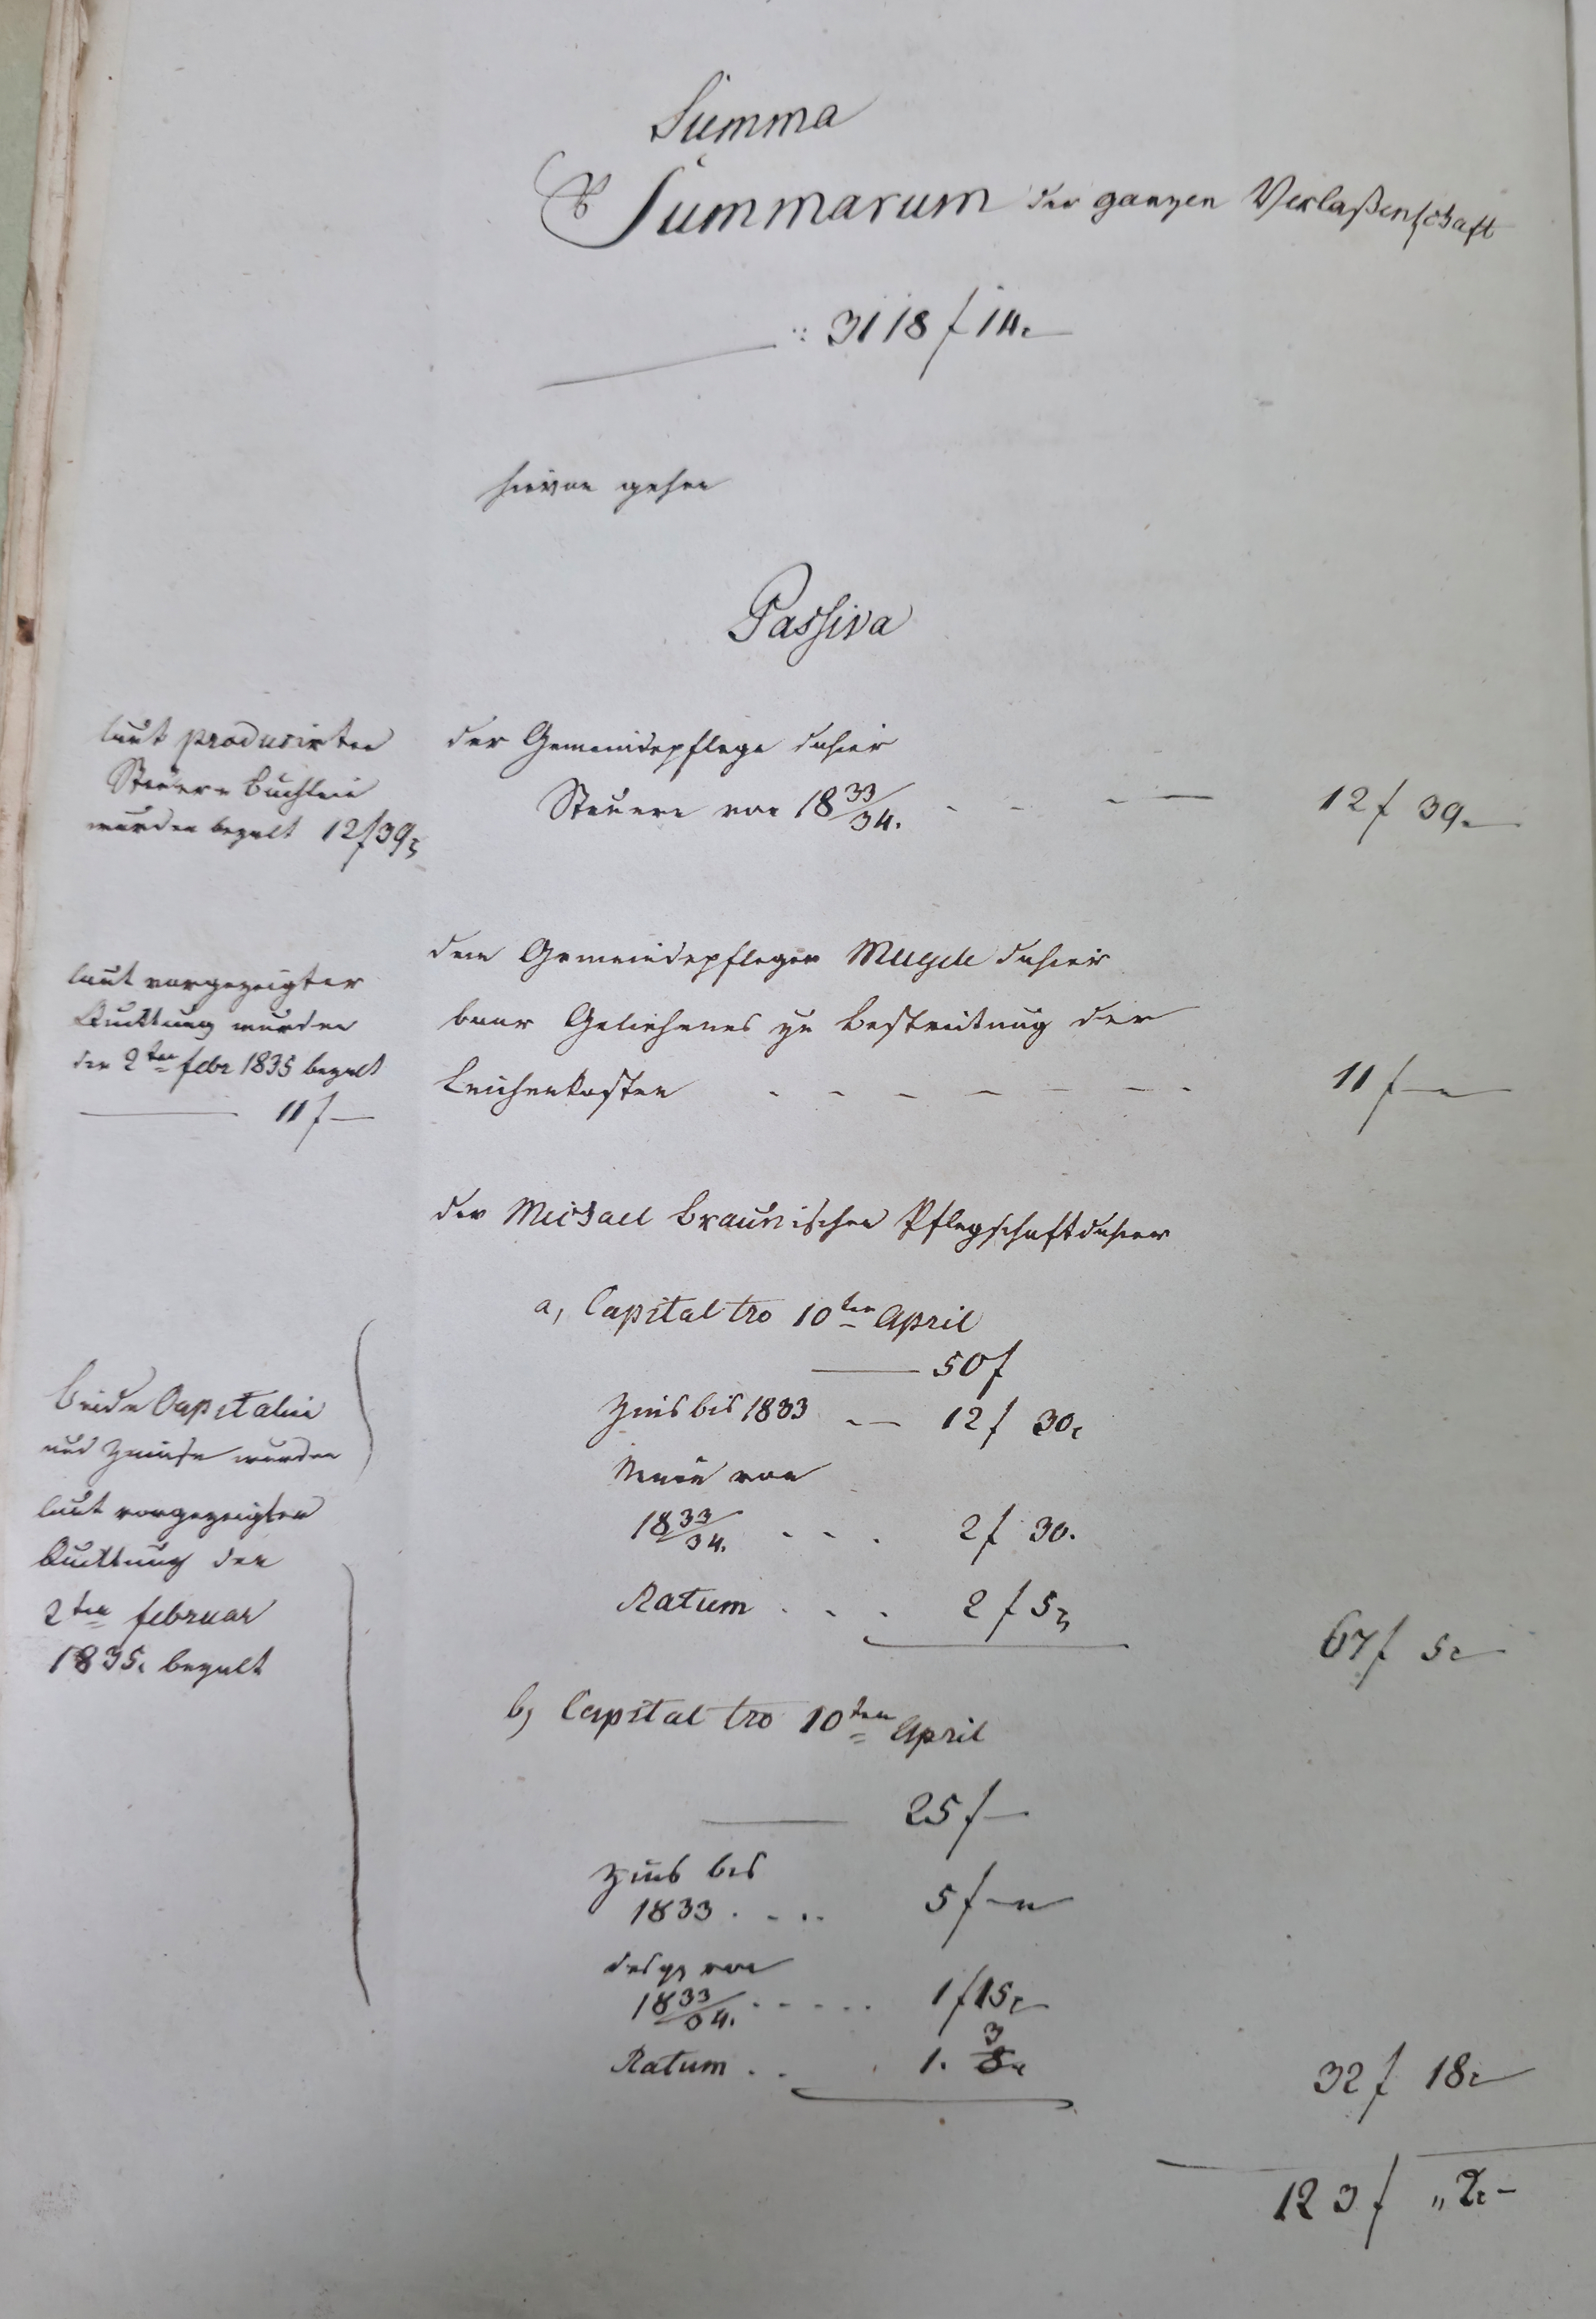 Summa
Summarum der ganzen Verlaßenschaft
3118 f 14.
hievon gehen
Passiva
laut producirten
Steuer-Büchlein
wurden bezalt 12 f 39
der Gemeindepflege dahier
Steuern von 18 33/34. 12 f 39.
laut vorgezeigter
Quittung wurden
den 2ten Febr 1835 bezalt
11 f
dem Gemeindepfleger dahier
baar Geliehenes zu Bestreitung der
Leichenkosten 11 f
der Michael Braunischen Pflegschaft dahier
Beide Capitalien
und Zinnse wurden
laut vorgezeigter
Quittung den
2ten Februar
1835. bezalt
a, Capital tro 10ten April
50 f
Zins bis 1833 12 f 30.
von
18 33/34. 2 f 30.
Ratum 2 f 5 67 f 5
b, Capital tro 10ten April
25 f
Zins bis
1833 5 f
desgl von
18 33/34. 1 f 15
Ratum 1. 3 32 f 18
123 f 2